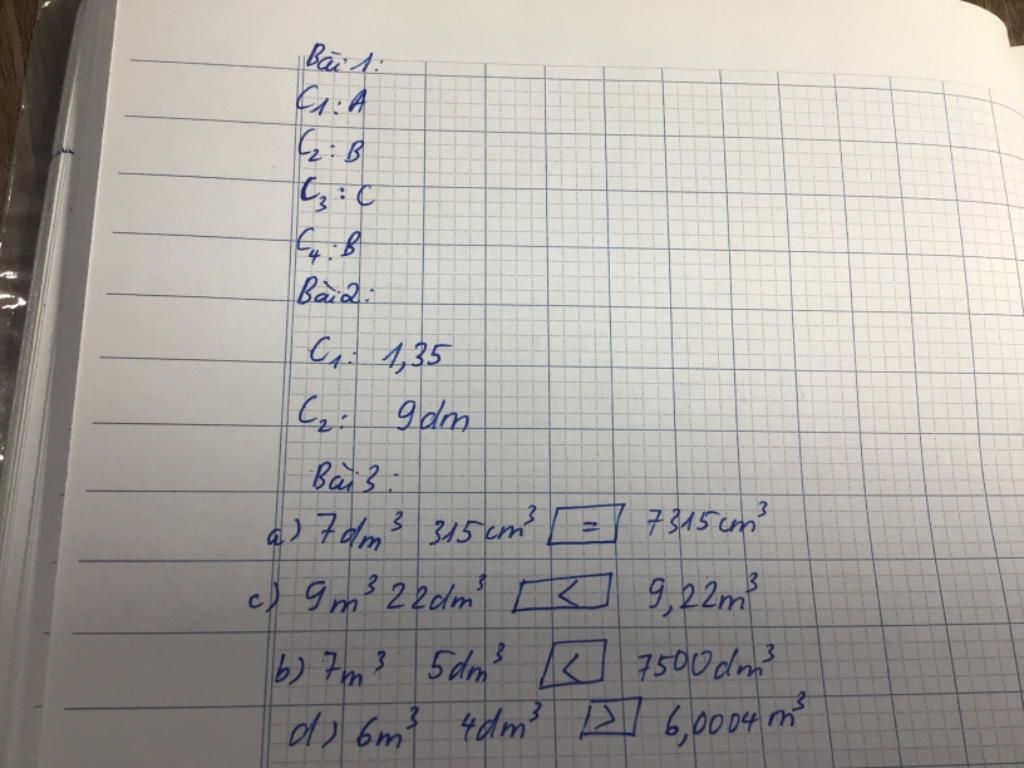 Bài 1:
C1: A
C2: B
C3: C
C4: B
Bài 2:
C1: 1,35
C2: 9dm
Bài 3:
a) 7dm³ 315cm³ = 7315cm³
c) 9m³ 22dm³ < 9,22m³
b) 7m³ 5dm³ < 7500dm³
d) 6m³ 4dm³ > 6,0004m³